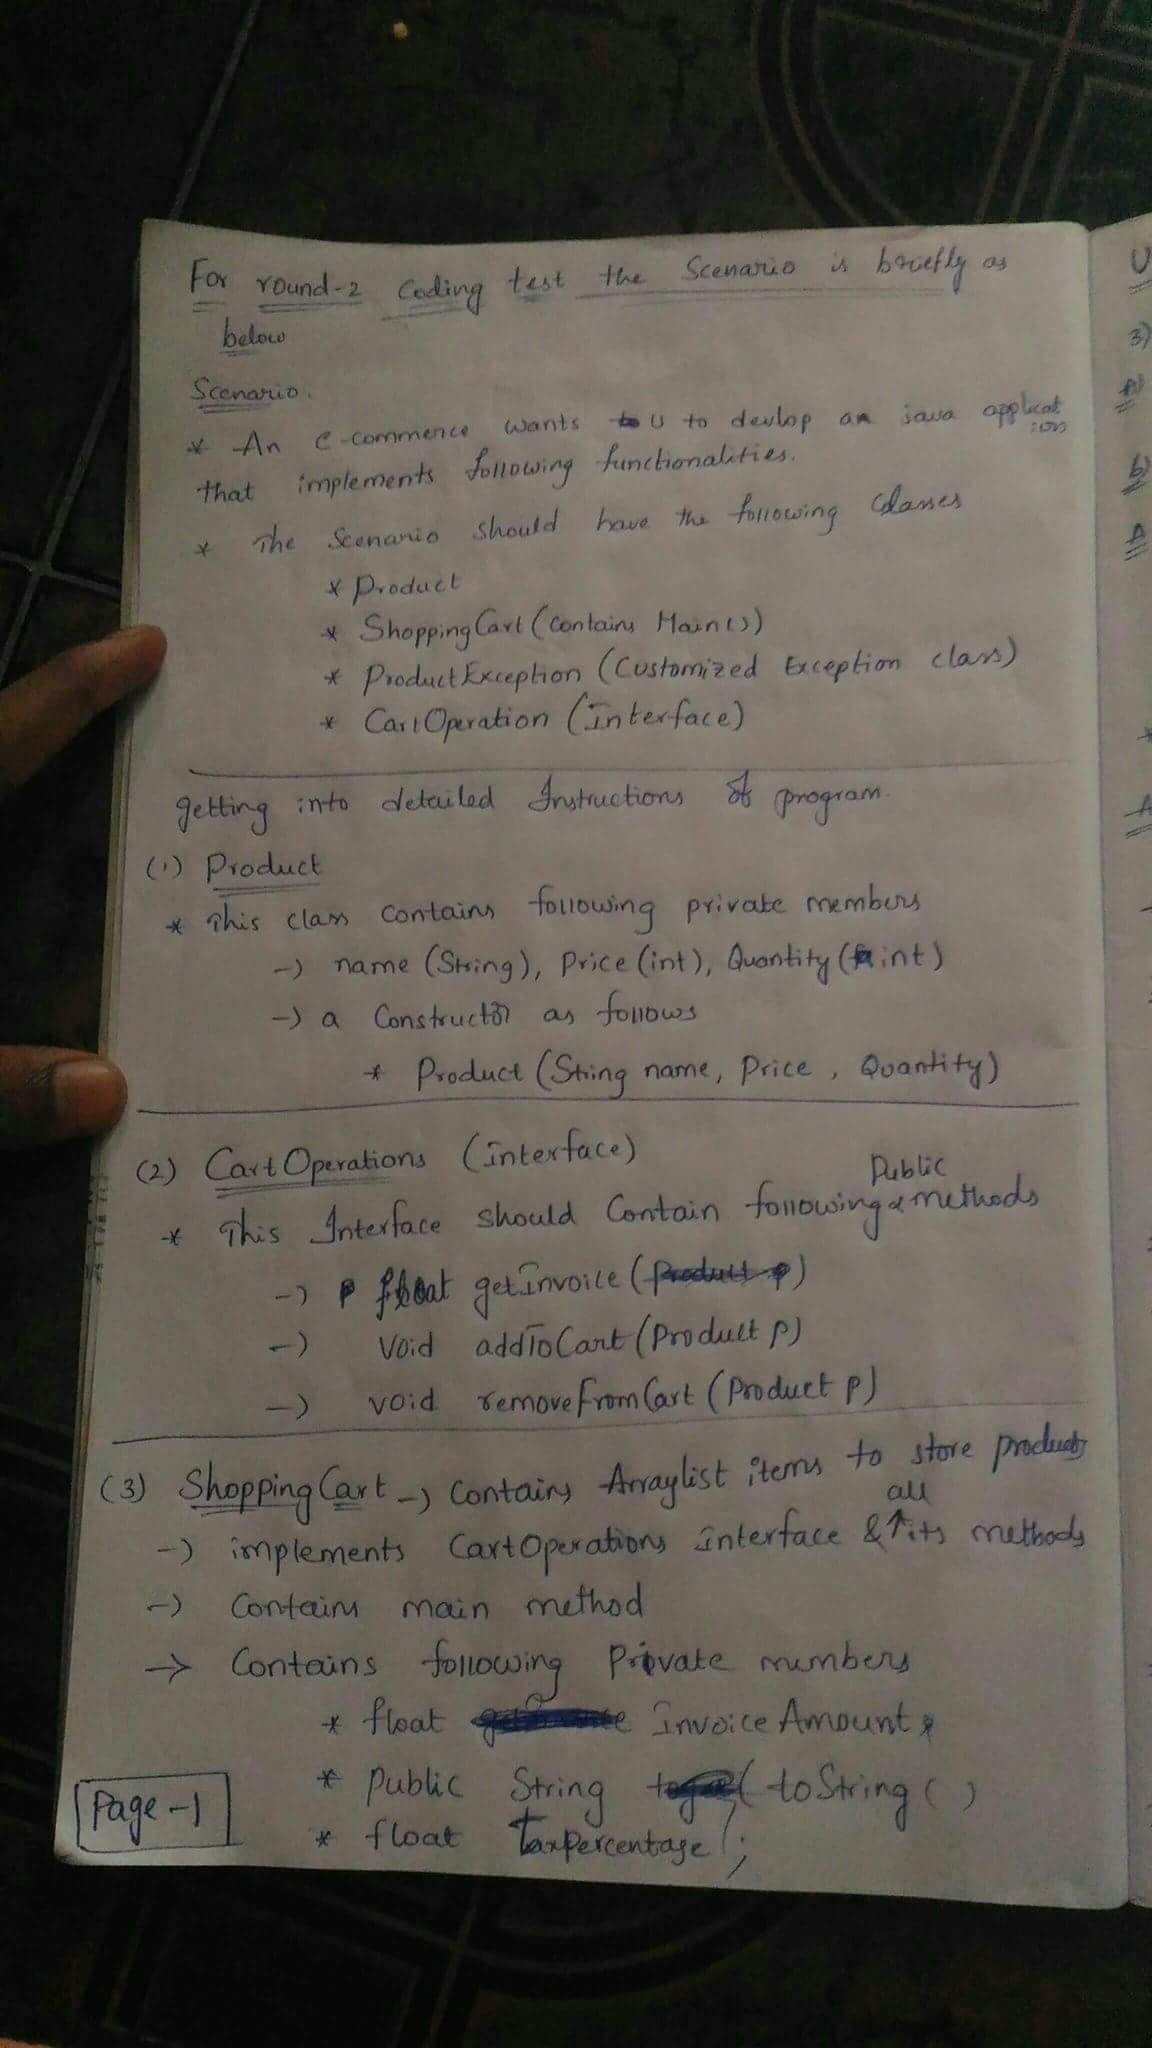 For round-2 Coding test the Scenario is briefly as
below
Scenario.
* An e-commerce wants U to devlop an java applicat
ion
that implements following functionalities.
* The Scenario should have the following classes
* Product
* ShoppingCart (Contains Main())
* ProductException (Customized Exception class)
* CartOperation (Interface)
getting into detailed Instructions of program.
(1) Product
* This class contains following private members
-) name (String), Price (int), Quantity (int)
-) a Constructor as follows
* Product (String name, Price, Quantity)
(2) CartOperations (interface)
Public
* This Interface should Contain following methods
-) float getInvoice ( )
-) void addToCart (Product p)
-) void removefromCart (Product p)
(3) ShoppingCart -) Contains Arraylist items to store products
all
-) implements CartOperations interface & ↑ its methods
-) Contains main method
-> Contains following Private members
* float InvoiceAmount;
* Public String toString ( )
* float Taxpercentage;
Page-1
U
3)
A)
b)
A